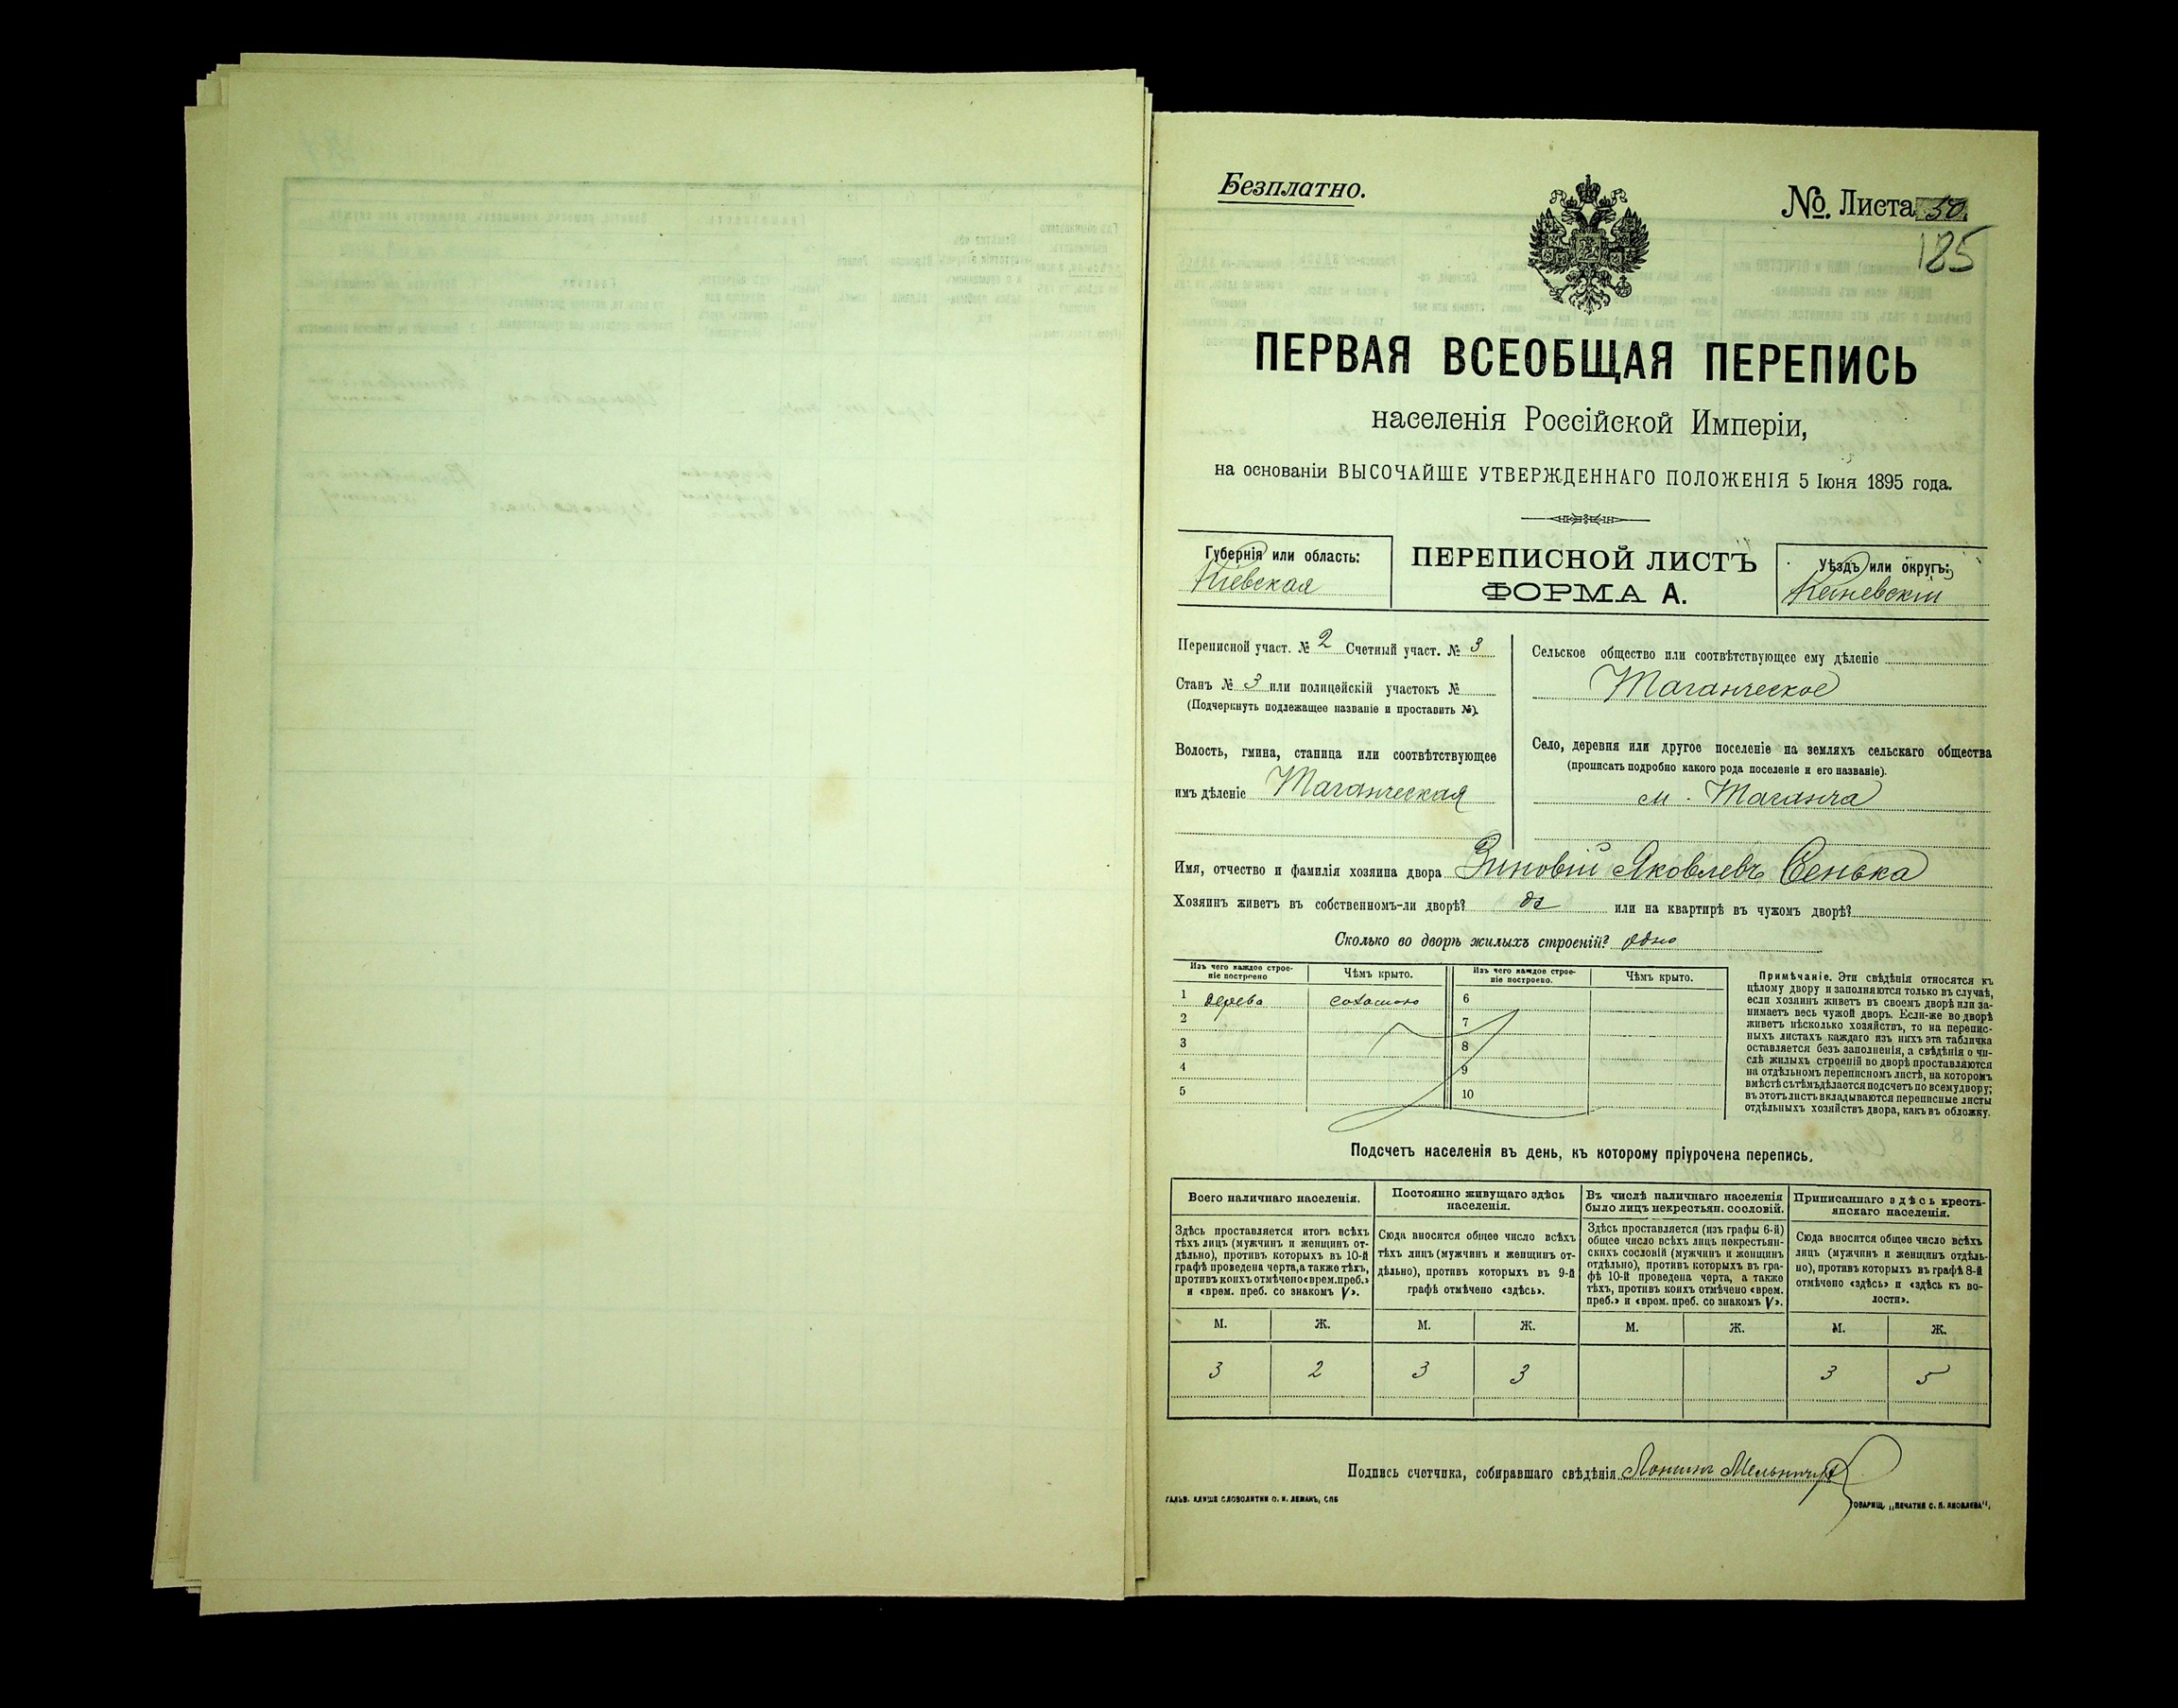 Безплатно.
№. Листа 50.
185
ПЕРВАЯ ВСЕОБЩАЯ ПЕРЕПИСЬ
населенія Россійской Имперіи,
на основаніи ВЫСОЧАЙШЕ УТВЕРЖДЕННАГО ПОЛОЖЕНІЯ 5 Іюня 1895 года.
Губернія или область:
Кіевская
ПЕРЕПИСНОЙ ЛИСТЪ
ФОРМА А.
Уѣздъ или округъ:
Каневскій
Переписной участ. № 2 Счетный участ. № 3
Станъ № 3 или полицейскій участокъ №
(Подчеркнуть подлежащее названіе и проставить №).
Волость, гмина, станица или соотвѣтствующее
имъ дѣленіе Таганческая
Сельское общество или соотвѣтствующее ему дѣленіе
Таганческое
Село, деревня или другое поселеніе на земляхъ сельскаго общества
(прописать подробно какого рода поселеніе и его названіе).
м. Таганча
Имя, отчество и фамилія хозяина двора Зиновій Яковлевъ Сенька
Хозяинъ живетъ въ собственномъ-ли дворѣ? да или на квартирѣ въ чужомъ дворѣ?
Сколько во дворѣ жилыхъ строеній? одно
Изъ чего каждое строе-
ніе построено
Чѣмъ крыто.
Изъ чего каждое строе-
ніе построено.
Чѣмъ крыто.
1 дерева соломою 6
2 7
3 8
4 9
5 10
Примѣчаніе. Эти свѣдѣнія относятся къ
цѣлому двору и заполняются только въ случаѣ,
если хозяинъ живетъ въ своемъ дворѣ или за-
нимаетъ весь чужой дворъ. Если-же во дворѣ
живетъ нѣсколько хозяйствъ, то на перепис-
ныхъ листахъ каждаго изъ нихъ эта табличка
оставляется безъ заполненія, а свѣдѣнія о чи-
слѣ жилыхъ строеній во дворѣ проставляются
на отдѣльномъ переписномъ листѣ, на которомъ
вмѣстѣ съ тѣмъ дѣлается подсчетъ по всему двору;
въ этотъ листъ вкладываются переписные листы
отдѣльныхъ хозяйствъ двора, какъ въ обложку.
Подсчетъ населенія въ день, къ которому пріурочена перепись.
Всего наличнаго населенія.
Здѣсь проставляется итогъ всѣхъ
тѣхъ лицъ (мужчинъ и женщинъ от-
дѣльно), противъ которыхъ въ 10-й
графѣ проведена черта, а также тѣхъ,
противъ коихъ отмѣчено «врем. преб.»
и «врем. преб. со знакомъ V».
Постоянно живущаго здѣсь
населенія.
Сюда вносится общее число всѣхъ
тѣхъ лицъ (мужчинъ и женщинъ от-
дѣльно), противъ которыхъ въ 9-й
графѣ отмѣчено «здѣсь».
Въ числѣ наличнаго населенія
было лицъ некрестьян. сословій.
Здѣсь проставляется (изъ графы 6-й)
общее число всѣхъ лицъ некрестьян-
скихъ сословій (мужчинъ и женщинъ
отдѣльно), противъ которыхъ въ гра-
фѣ 10-й проведена черта, а также
тѣхъ, противъ коихъ отмѣчено «врем.
преб.» и «врем. преб. со знакомъ V».
Приписаннаго здѣсь кресть-
янскаго населенія.
Сюда вносится общее число всѣхъ
лицъ (мужчинъ и женщинъ отдѣль-
но), противъ которыхъ въ графѣ 8-й
отмѣчено «здѣсь» и «здѣсь къ во-
лости».
М. Ж. М. Ж. М. Ж. М. Ж.
3 2 3 3 3 5
Подпись счетчика, собиравшаго свѣдѣнія
ГАЛЬВ. КЛИШЕ СЛОВОЛИТНИ О. И. ЛЕМАНЪ, СПБ
ТОВАРИЩ. „ПЕЧАТНЯ С. П. ЯКОВЛЕВА",